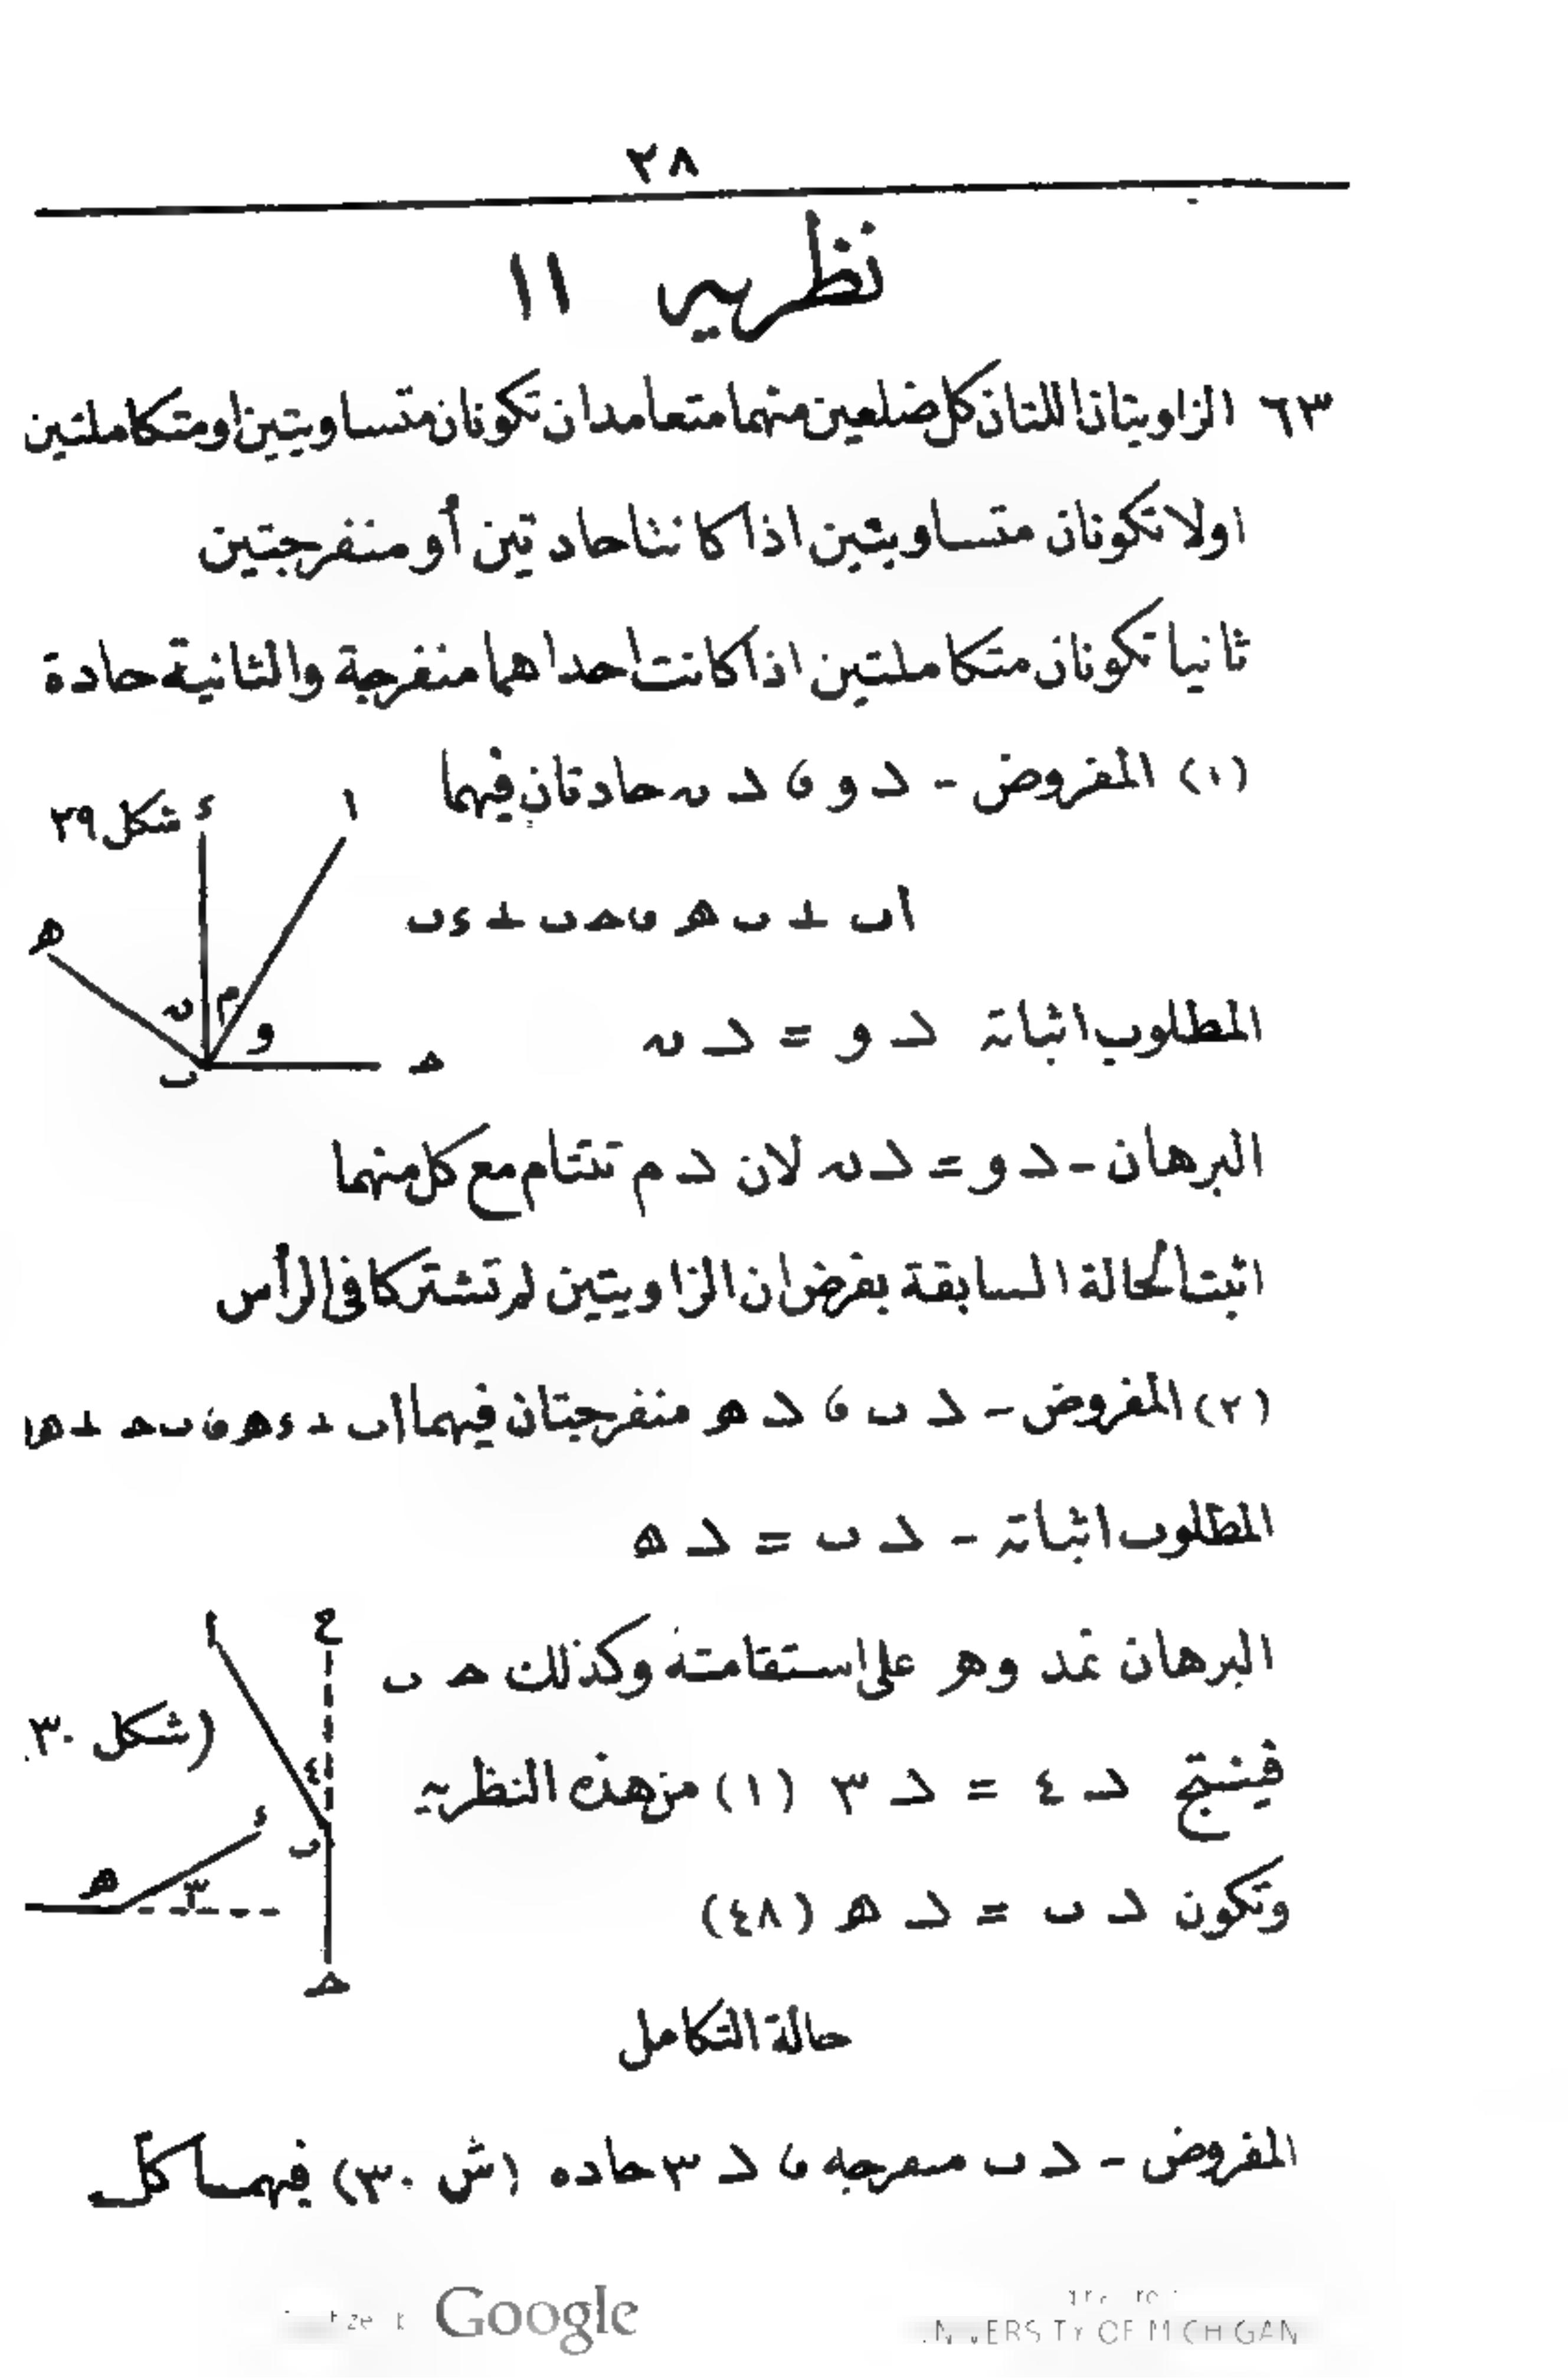 ٢٨
نظريه ١١
٦٣ الزاويتان اللتان كل ضلعين منهما متعامدان تكونان متساويتين او متكاملتين
اولا تكونان متساويتين اذا كانتا حادتين أو منفرجتين
ثانيا تكونان متكاملتين اذا كانت احداهما منفرجة والثانية حادة
(١) المفروض - د و ၊ د ں حادتان فيهما
ا ء شكل ٢٩
اب ⊥ ب ه ၊ حب ⊥ ءب
ه
م ں و
المطلوب اثباته د و = د ں
ح ب
البرهان - د و = د ں لان د م تتتام مع كل منهما
اثبت الحالة السابقة بفرض ان الزاويتين لم تشتركا فى الرأس
(٢) المفروض - د ب ၊ د ه منفرجتان فيهما اب ⊥ ءه ၊ بح ⊥ ها
المطلوب اثباته - د ب = د ه
ع ا
البرهان نمد وهر على استقامته وكذلك ح ب
(شكل ٣٠
فينتج د ٤ = د ٣ (١) من هذه النظريه
٤
ء
ب
وتكون د ب = د ه (٤٨)
ه ٣
ح
حالة التكامل
المفروض - د ب منفرجه ၊ د ٣ حاده (ش ٣٠) فيهما كل
Google
UNIVERSITY OF MICHIGAN